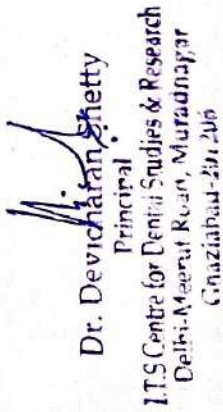 Dr. Devicharan Shetty
Principal
I.T.S Centre for Dental Studies & Research
Delhi-Meerut Road, Muradnagar
Ghaziabad